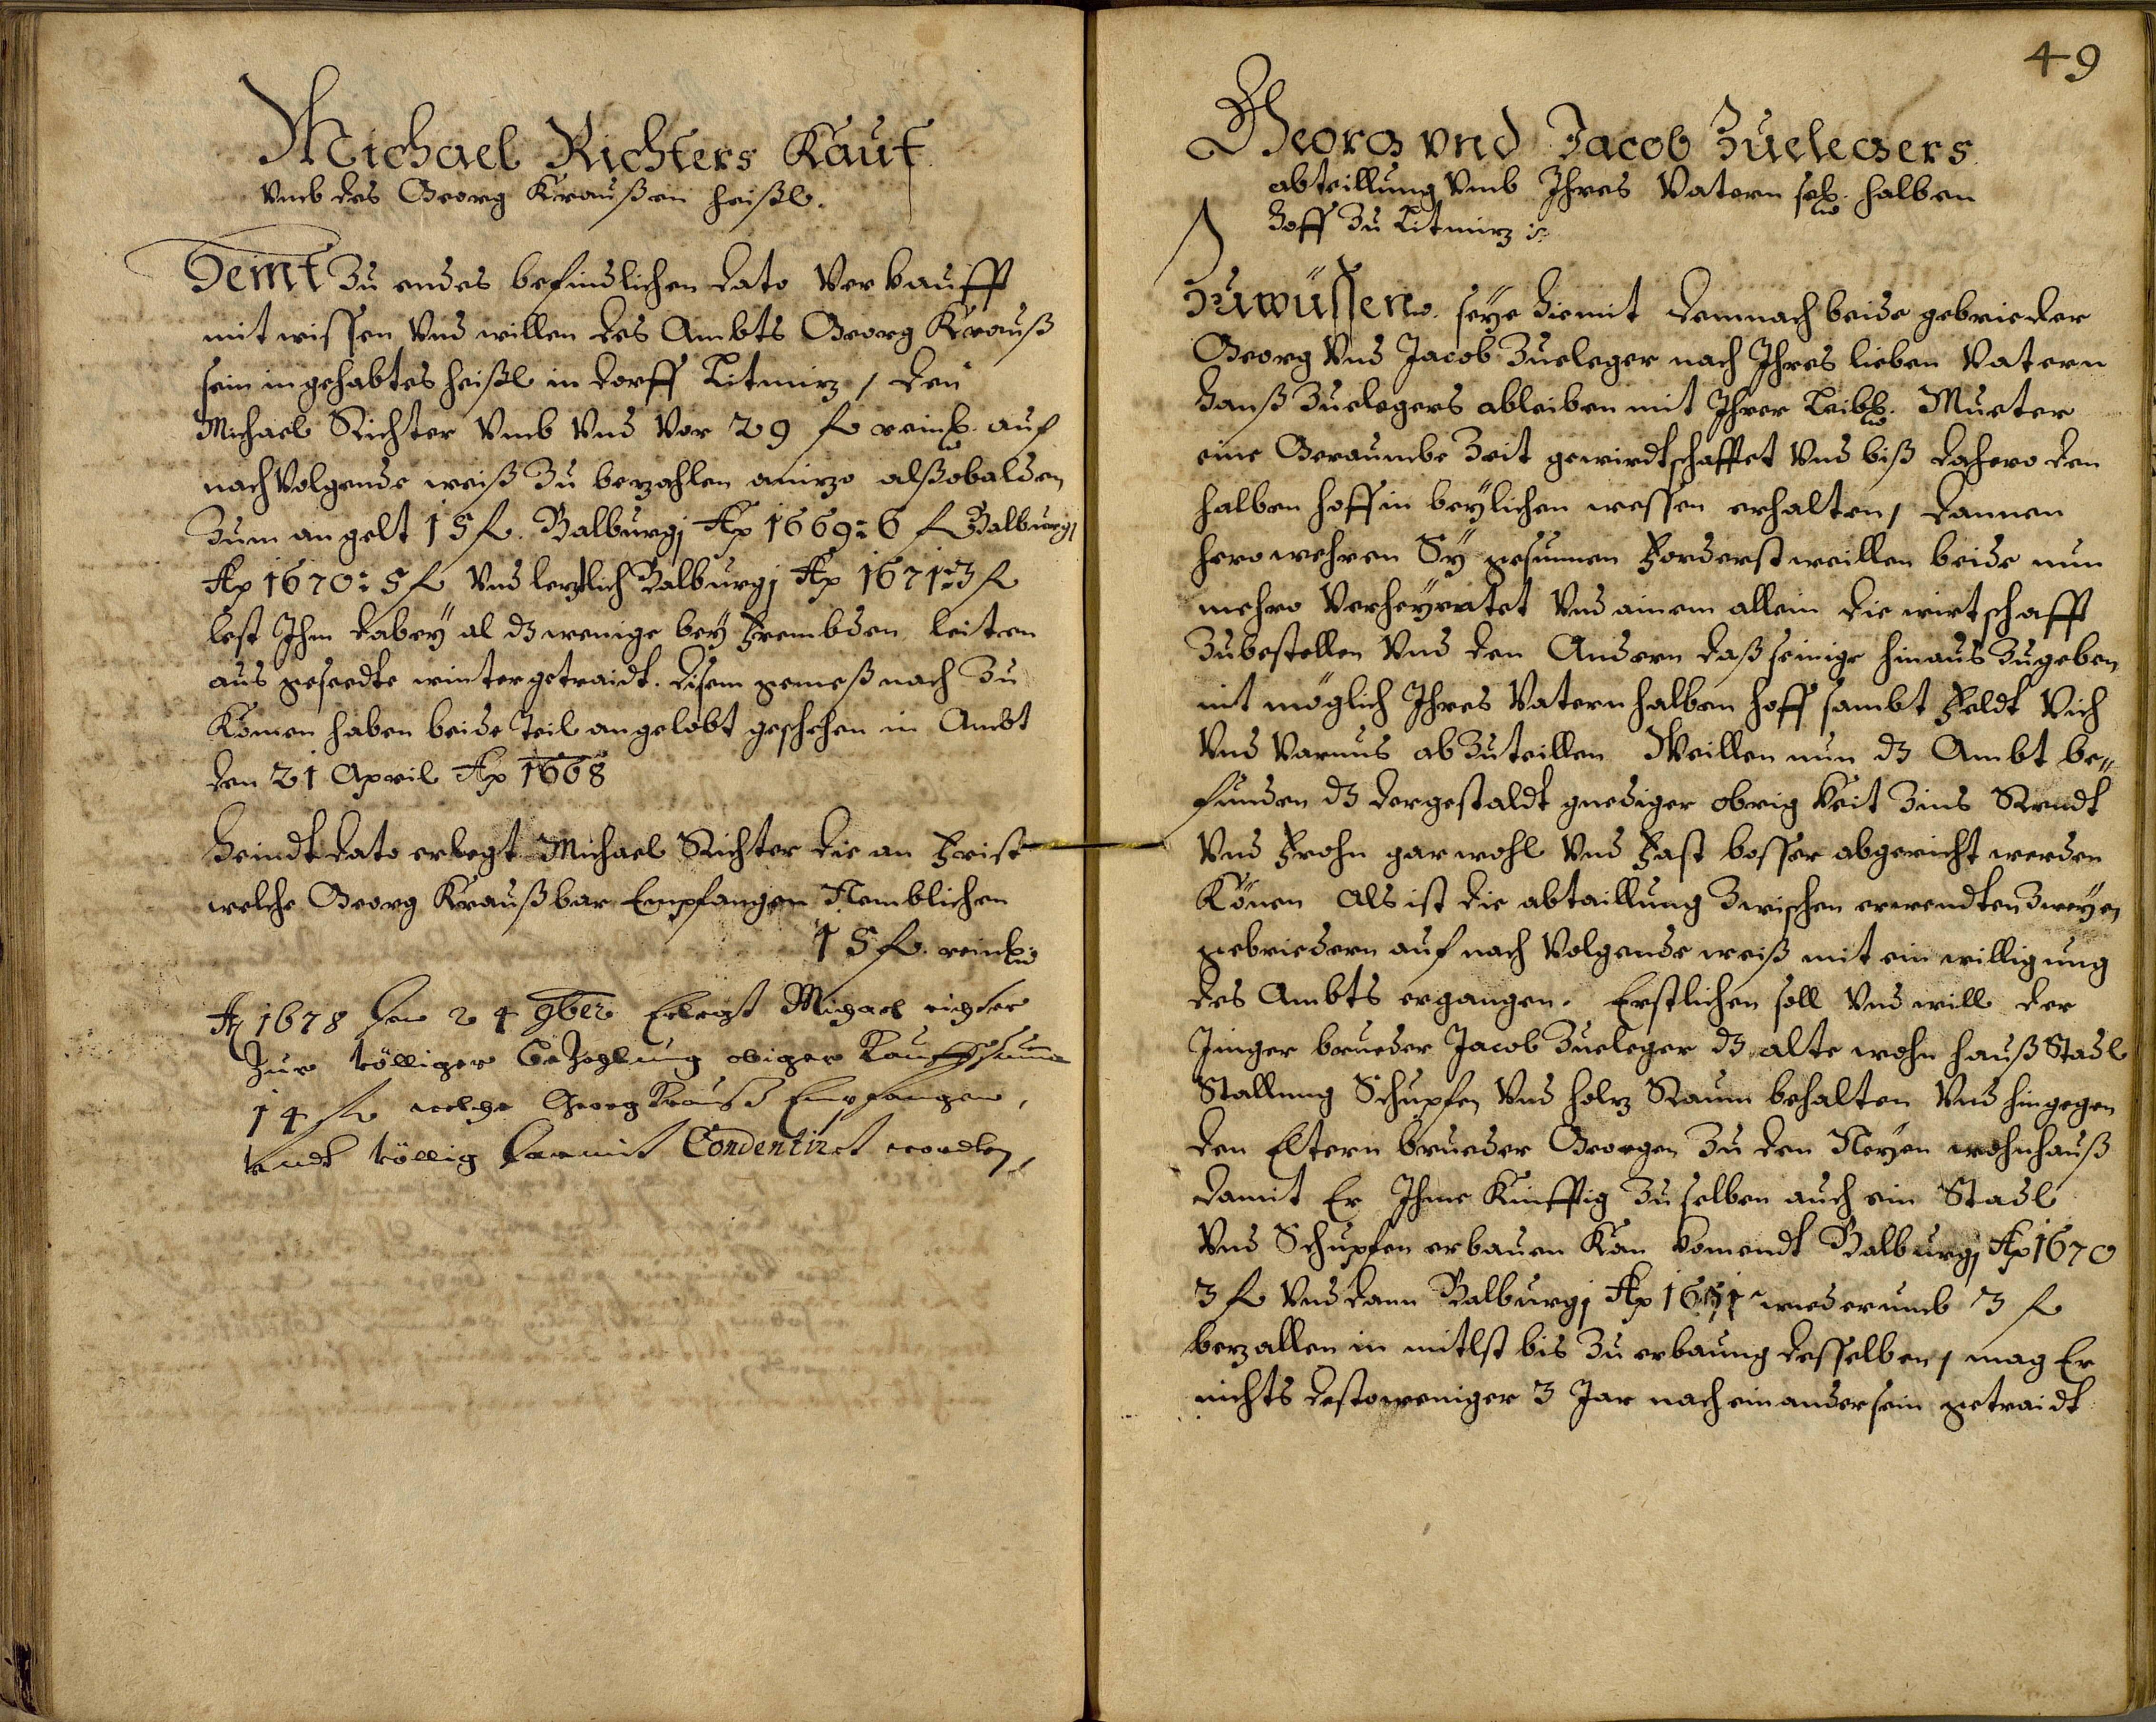 Michael Richters Kauf
Vmb des Georg Kraußen heißl.
Heint Zu endes befindlichen dato Verkaufft
mit wissen Vnd willen des Ambts Georg Krauß
sein ingehabtes heißl in dorff Litmirz, den
Michael Richter Vmb Vnd Vor 29 fl reinl. auf
nach Volgende weiß Zu bezahlen anizo alßobalden
Zum angelt 15 fl. Walburgj Ao 1669: 6 fl Walburgj
Ao 1670: 5 fl Vnd lezlich Walburgj Ao 1671: 3 fl
lest Ihm dabey al dz wenige bey frembden leiten
aus geseedte wintergetraidt. disem gemeß nach Zu
Komen haben beide Teil angelobt geschehen in Ambt
den 21 April Ao 1668
Heindt dato erlegt Michael Richter die an Frist
welche Georg Krauß bar Empfangen Nemblichen
15 fl. reinl.
Ao 1678 den 24 9ber Erlegt Michael richter
Zur völliger Bezahlung obiger Kauffsuma
14 fl welche Georg Krauß Empfangen,
vndt völlig darmit Condentirt wordten,
49
Georg vnd Jacob Zuelegers
abteillung Vmb Ihres Vatern sel. halben
Hoff Zu Litmirz
Zuwüssen. seye hiemit demnach beide gebrieder
Georg Vnd Jacob Zueleger nach Ihres lieben Vatern
Hanß Zuelegers ableiben mit Ihrer Leibl. Mueter
eine Geraumbe Zeit gewirdtschafftet Vnd biß dahero den
halben hoff in beylichen wessen erhalten, dannen
hero wehren Sy gesunnen Forderst weillen beide nun
mehro Verheyratet Vnd ainem allein die wirtschafft
Zubestellen Vnd den Andern daß seinige hinaus Zugeben
nit möglich Ihres Vatern halben hoff sambt Feldt Vich
Vnd Varnus ab Zuteillen Weillen nun dz Ambt be„
funden dz dergestaldt gnediger obrigkeit Zins Rendt
Vnd Frohn gar wohl Vnd Fast besser abgericht werden
Könen als ist die abtaillung Zwischen erwendten Zweyen
gebriedern auf nach Volgende weiß mit ein willigung
des Ambts ergangen. Erstlichen soll Vnd will der
Jinger brueder Jacob Zueleger dz alte wohn hauß Stadl
Stallung Schupfen Vnd holz Raum behalten Vnd hingegen
den Eltern brueder Georgen Zu den Neyen wohnhauß
damit Er Ihme Kinfftig Zu selben auch ein Stadl
Vnd Schupfen erbauen Kan komendt Walburgj Ao 1670
3 fl Vnd dann Walburgj Ao 1671 wiederumb 3 fl
bezallen in mitlst bis Zu erbaung desselben, mag Er
nichts destoweniger 3 Jar nacheinander sein getraidt